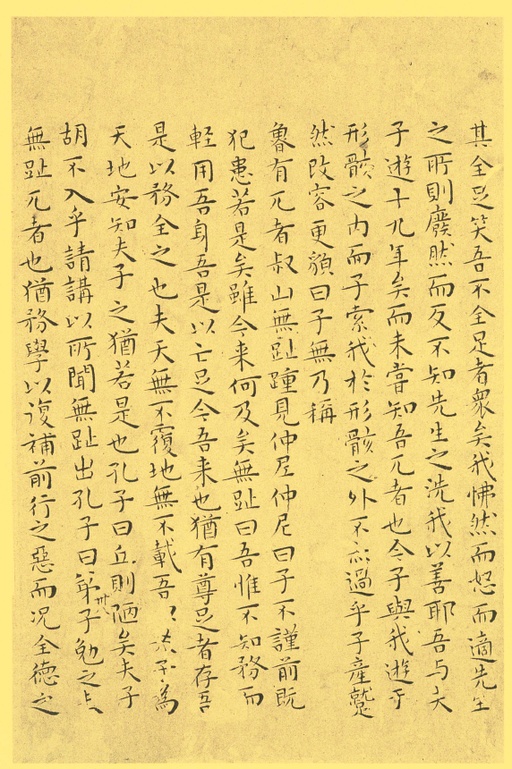 其全足笑吾不全足者衆矣我怫然而怒而適先生
之所則廢然而反不知先生之洗我以善耶吾与夫
子遊十九年矣而未嘗知吾兀者也今子與我遊乎
形骸之内而子索我於形骸之外不亦過乎子產蹵
然改容更貌曰子無乃稱
魯有兀者叔山無趾踵見仲尼仲尼曰子不謹前既
犯患若是矣雖今来何及矣無趾曰吾惟不知務而
軽用吾身吾是以亡足今吾来也猶有尊足者存吾
是以務全之也夫天無不覆地無不載吾以夫子為
天地安知夫子之猶若是也孔子曰丘則陋矣夫子
胡不入乎請講以所聞無趾出孔子曰弟子勉之
無趾兀者也猶務學以復補前行之惡而况全德之